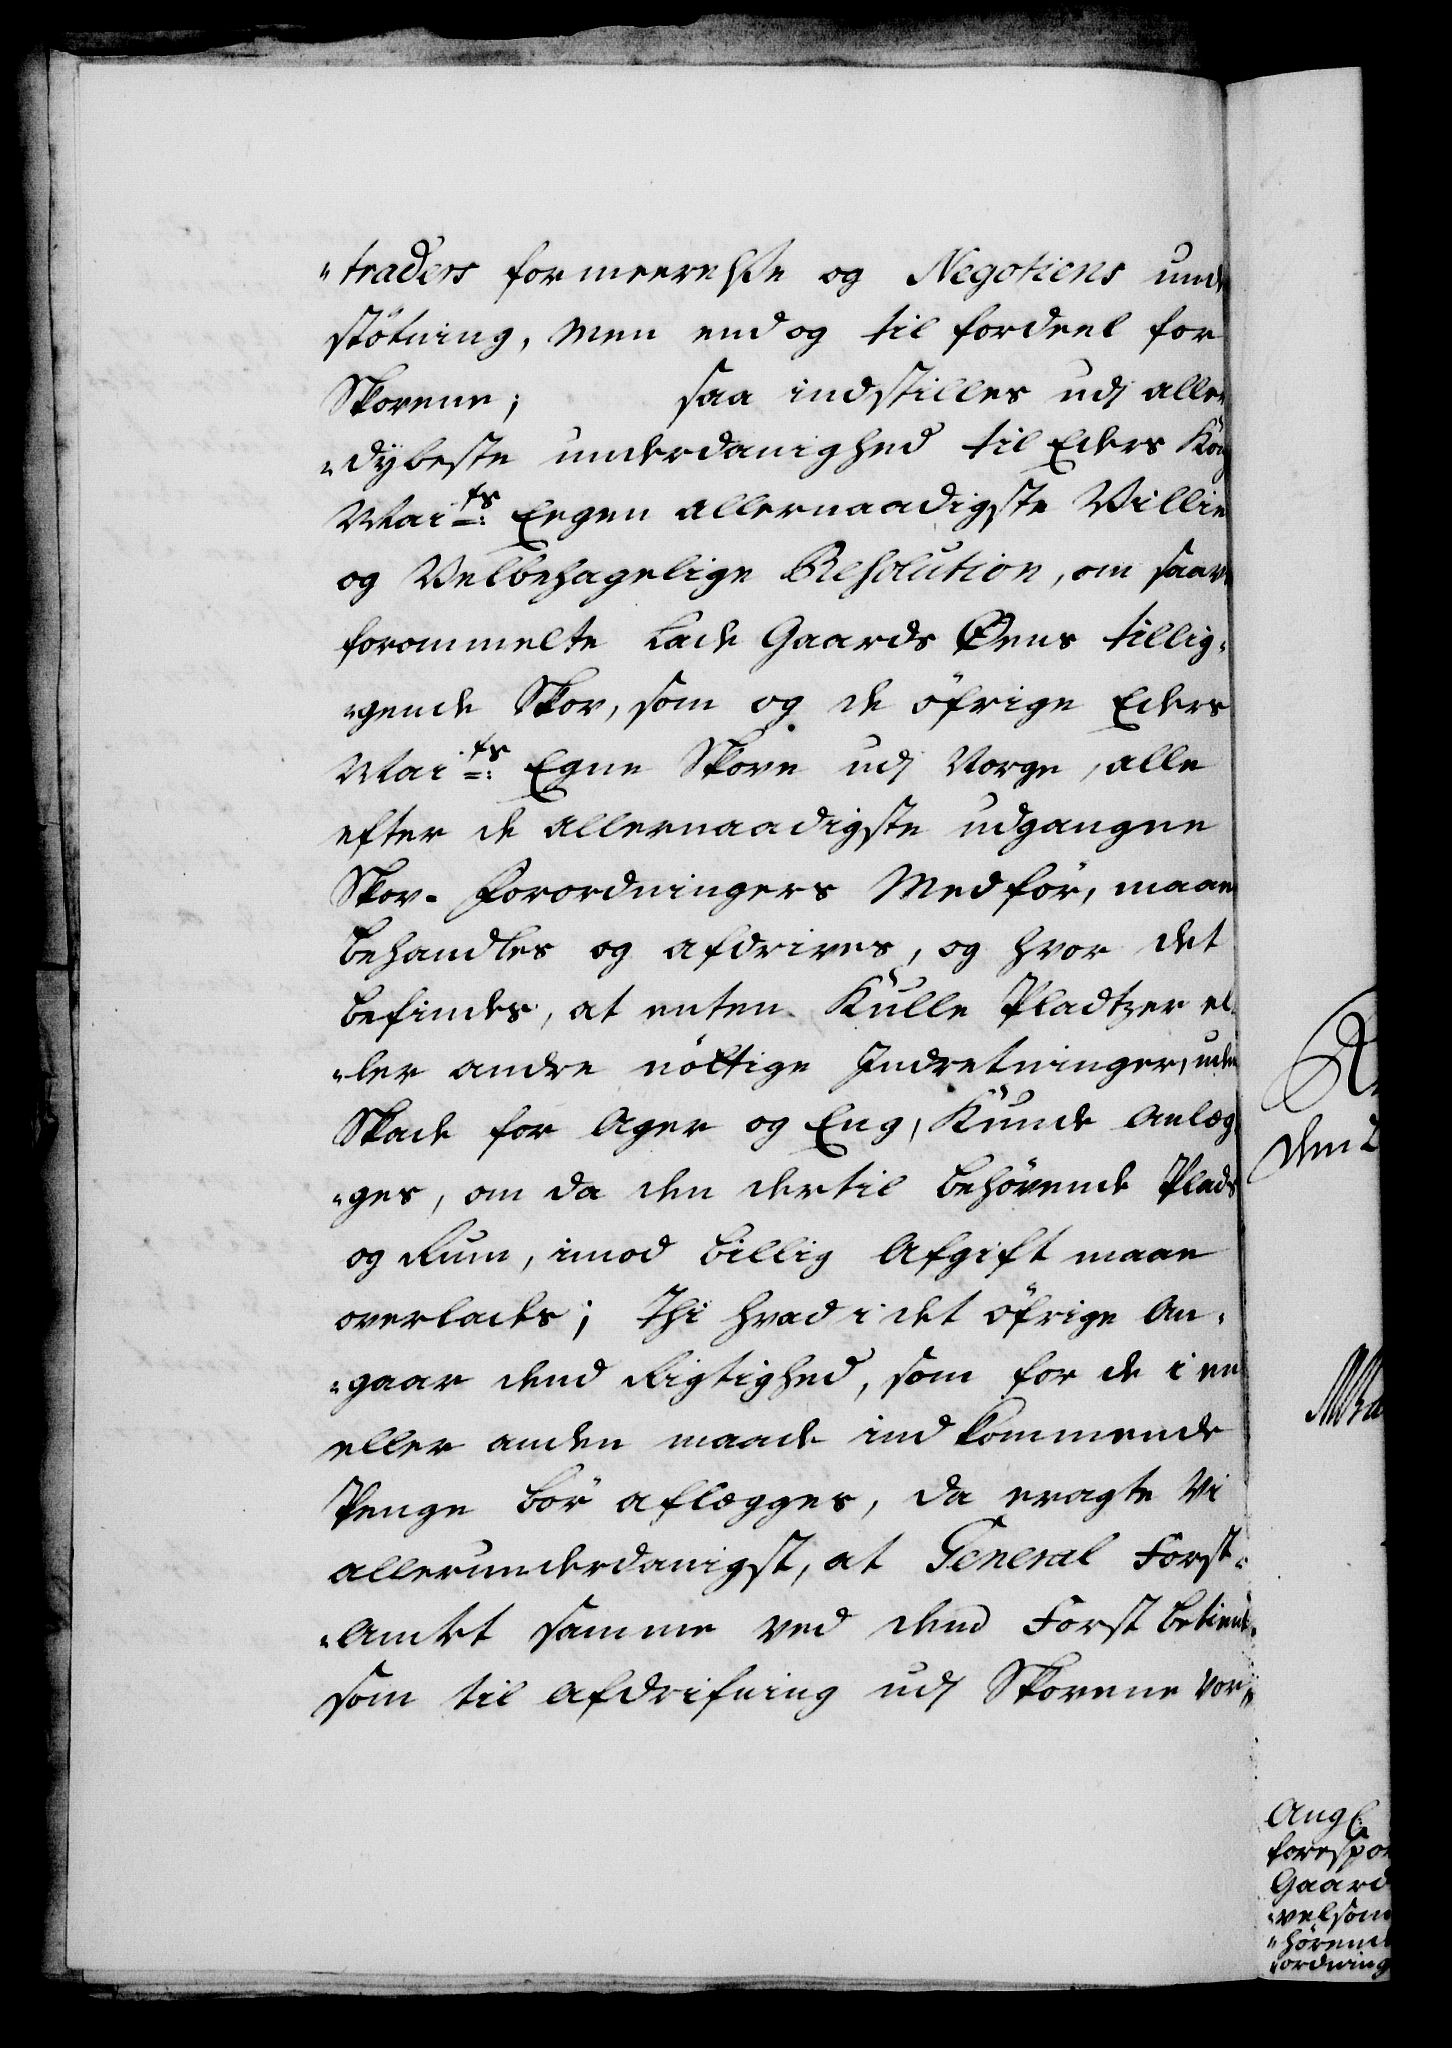 "traders formeerelsse og Negotiens unde
støtning, men end og til fordeel for
Skovene; saa indstilles udj aller
"dybeste underdanighed til Eders Kong
Mai:ts Eegen allernaadigste Villie
og Velbehagelige Resolution, om saavel
forommelte Lade Gaards Øens tillig-
"gende Skov, som og de öfrige Eders
Mai:ts Egne Skove udj Norge, alle
efter de allernaadigste udgangne
Skov-Forordningers Medfør, maae
behandles og afdrives, og hvor det
befindes, at enten Kulle Pladtzer el-
"ler andre nöttige Indretninger, uden
Skade for Ager og Eng, Kunde Anlæg-
"ges, om da den dertil behøvende Plads
og Rum, imod billig Afgift maae
overlades; Thi hvad i det öfrige An-
"gaar dend Rigtighed, som for de i en
eller anden maade indkommende
Penge bör aflægges, da eragte Vi
allerunderdanigst, at General Forst-
"Amtet samme ved dend Forst betient
som til afdrifning udj Skovene vor-
den
Ang
forespør
Gaard
"velsom
"hørende
ordning